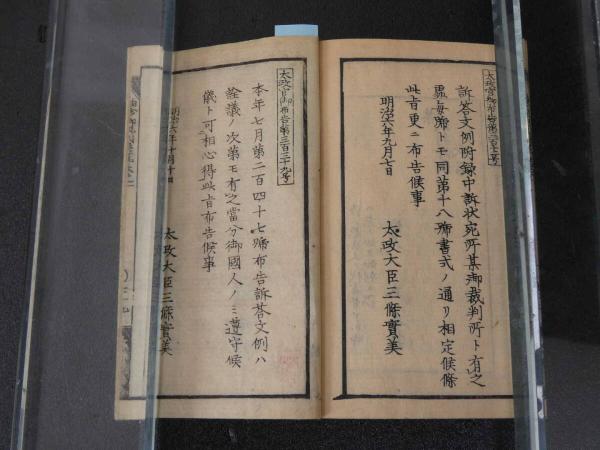 太政官御布告第三百七号
訴答文例附録中訴状宛所某御裁判所ト有之
雛形ト𪜈同第十八號書式ノ通リ相定候條
此旨更ニ布告候事
明治六年九月七日
太政大臣三條實美
太政官御布告第三百二十九号
本年七月第二百四十七號布告訴答文例ハ
詮議ノ次第モ有之當分御國人ノミ遵守候
儀ト可相心得此旨布告候事
明治六年十月十四
太政大臣三條實美